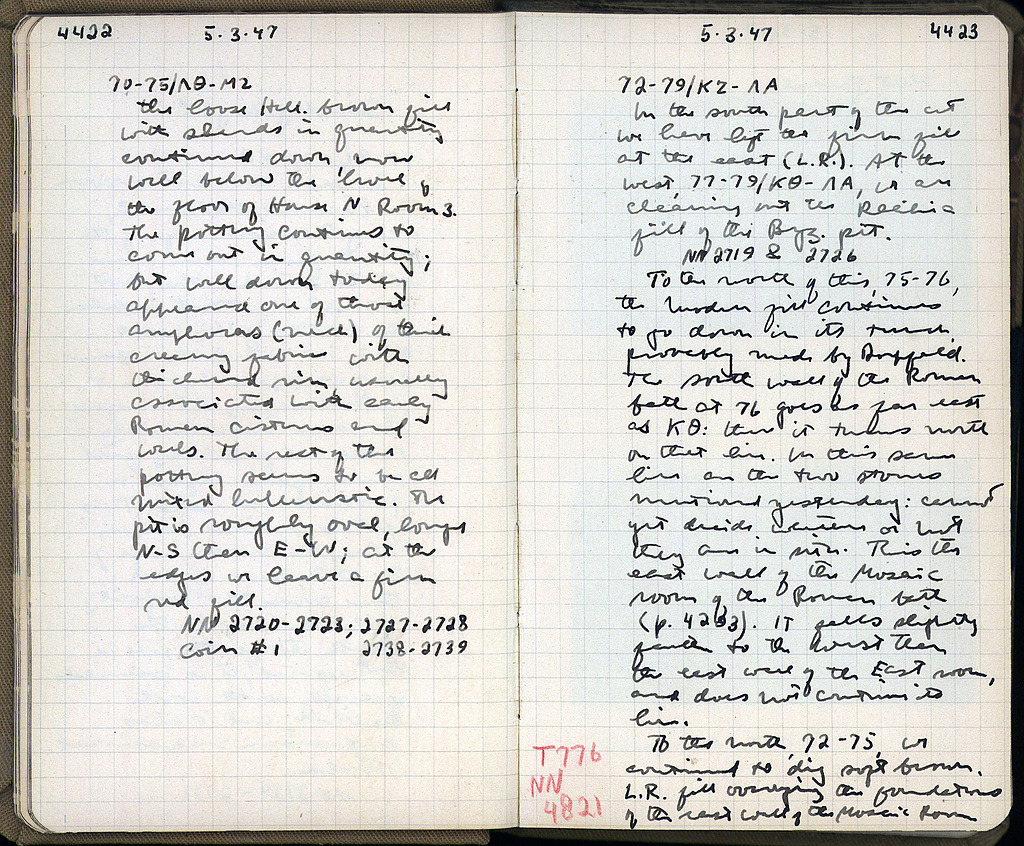 4422 5·3·47
70-75/ΛΘ-ΜΖ
the loose Hell. brown fill
with sherds in quantity
continued down, now
well below the level of
the floor of House N Room 3.
The pottery continues to
come out in quantity;
but well down today
appeared one of those
amphoras (neck) of thin
creamy fabric with
thickened rim, usually
associated with early
Roman cisterns and
wells. The rest of the
pottery seems to be all
mixed hellenistic. The
pit is roughly oval, longer
N-S than E-W; at the
edges we leave a firm
red fill.
NN 2720-2723; 2727-2728
Coin #1 2738-2739
5·3·47 4423
72-79/ΚΖ-ΛΑ
In the south part of the cut
we have left the firm fill
at the east (L.R.). At the
west, 77-79/ΚΘ-ΛΑ, we are
cleaning out the
fill of the Byz. pit.
NN 2719 & 2726
To the north of this, 75-76,
the modern fill continues
to go down in its trench
probably made by Dörpfeld.
The south wall of the Roman
bath at 76 goes as far east
as ΚΘ: then it turns north
on that line. In this same
line are the two stones
mentioned yesterday: cannot
yet decide whether or not
they are in situ. This is the
east wall of the Mosaic
room of the Roman bath
(p. 4293). It falls slightly
farther to the west than
the east wall of the East room,
and does not continue its
line.
To the north, 72-75, we
continued to dig soft brown.
L.R. fill overlying the foundations
of the east wall of the Mosaic Room
T776
NN
4821